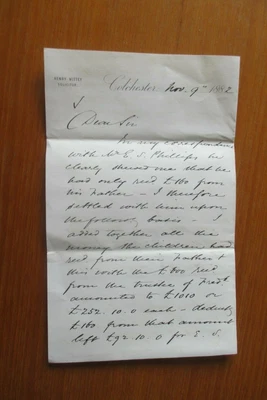 HENRY
SOLICITOR
Colchester, Nov. 9th 1882
Dear Sir
In my correspondence
with Mr E. S. Phillips he
clearly shewed me that he
had only recd £160 from
his Father — I therefore
settled with him upon
the followg basis — I
added together all the
money the children had
recd from their Father &
this with the £ 800 recd
from the trustee of Fredk
amounted to £1010 or
£252. 10. 0 each — deductg
£160 from that amount
left £92. 10. 0 for E. S.